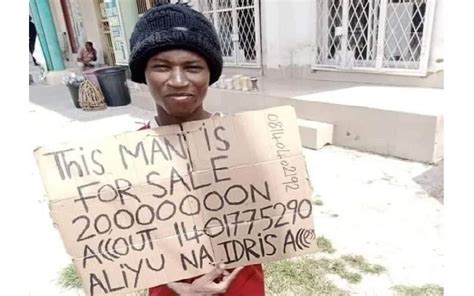 THIS MAN IS
FOR SALE
20000000N
ACCOUT 1401775290
ALIYU NA IDRIS Acces
08140402192